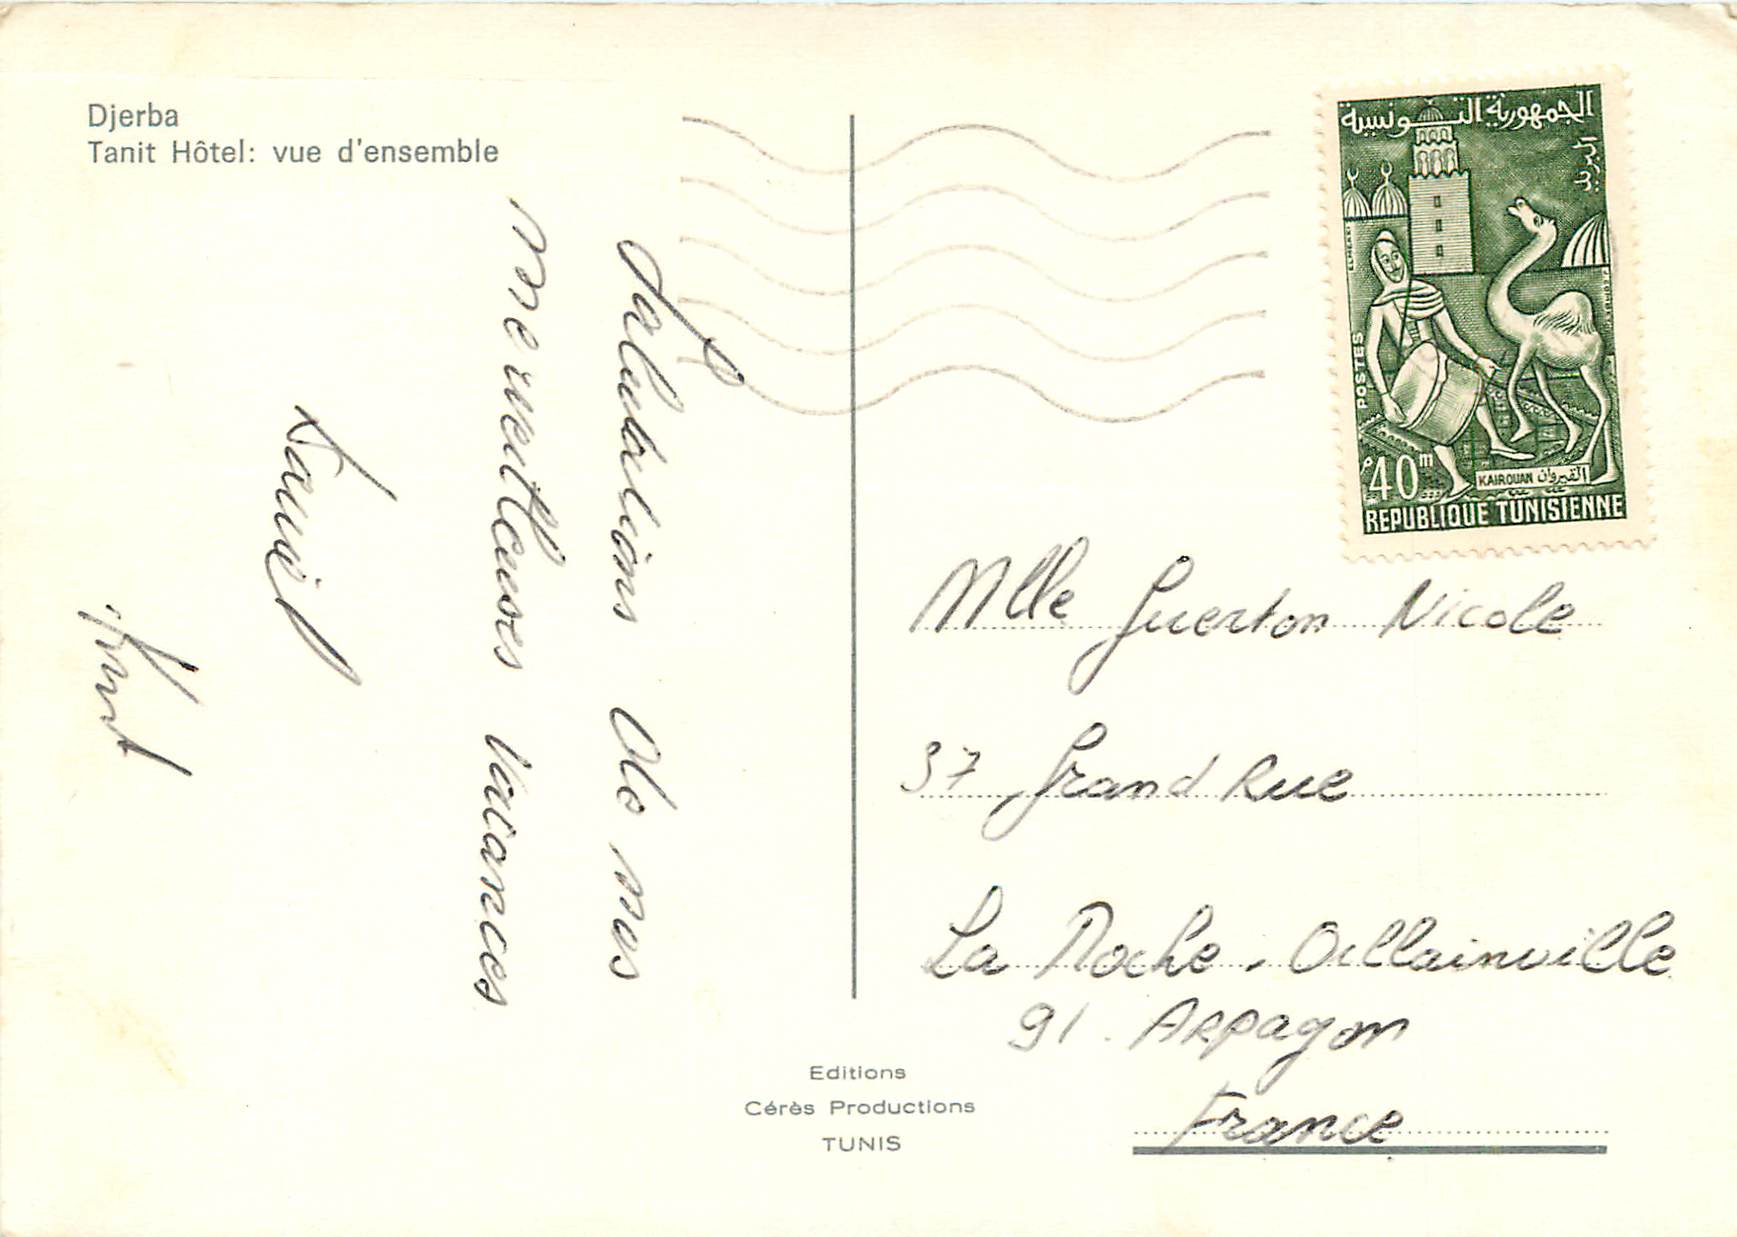 Djerba
Tanit Hôtel: vue d'ensemble
Salutations de nos
merveilleuses vacances
الجمهورية التونسية
البريد
POSTES
40m
KAIROUAN القيروان
REPUBLIQUE TUNISIENNE
Mlle Guerton Nicole
37 Grand Rue
La Roche. Ollainville
91. Arpagon
France
Editions
Cérès Productions
TUNIS